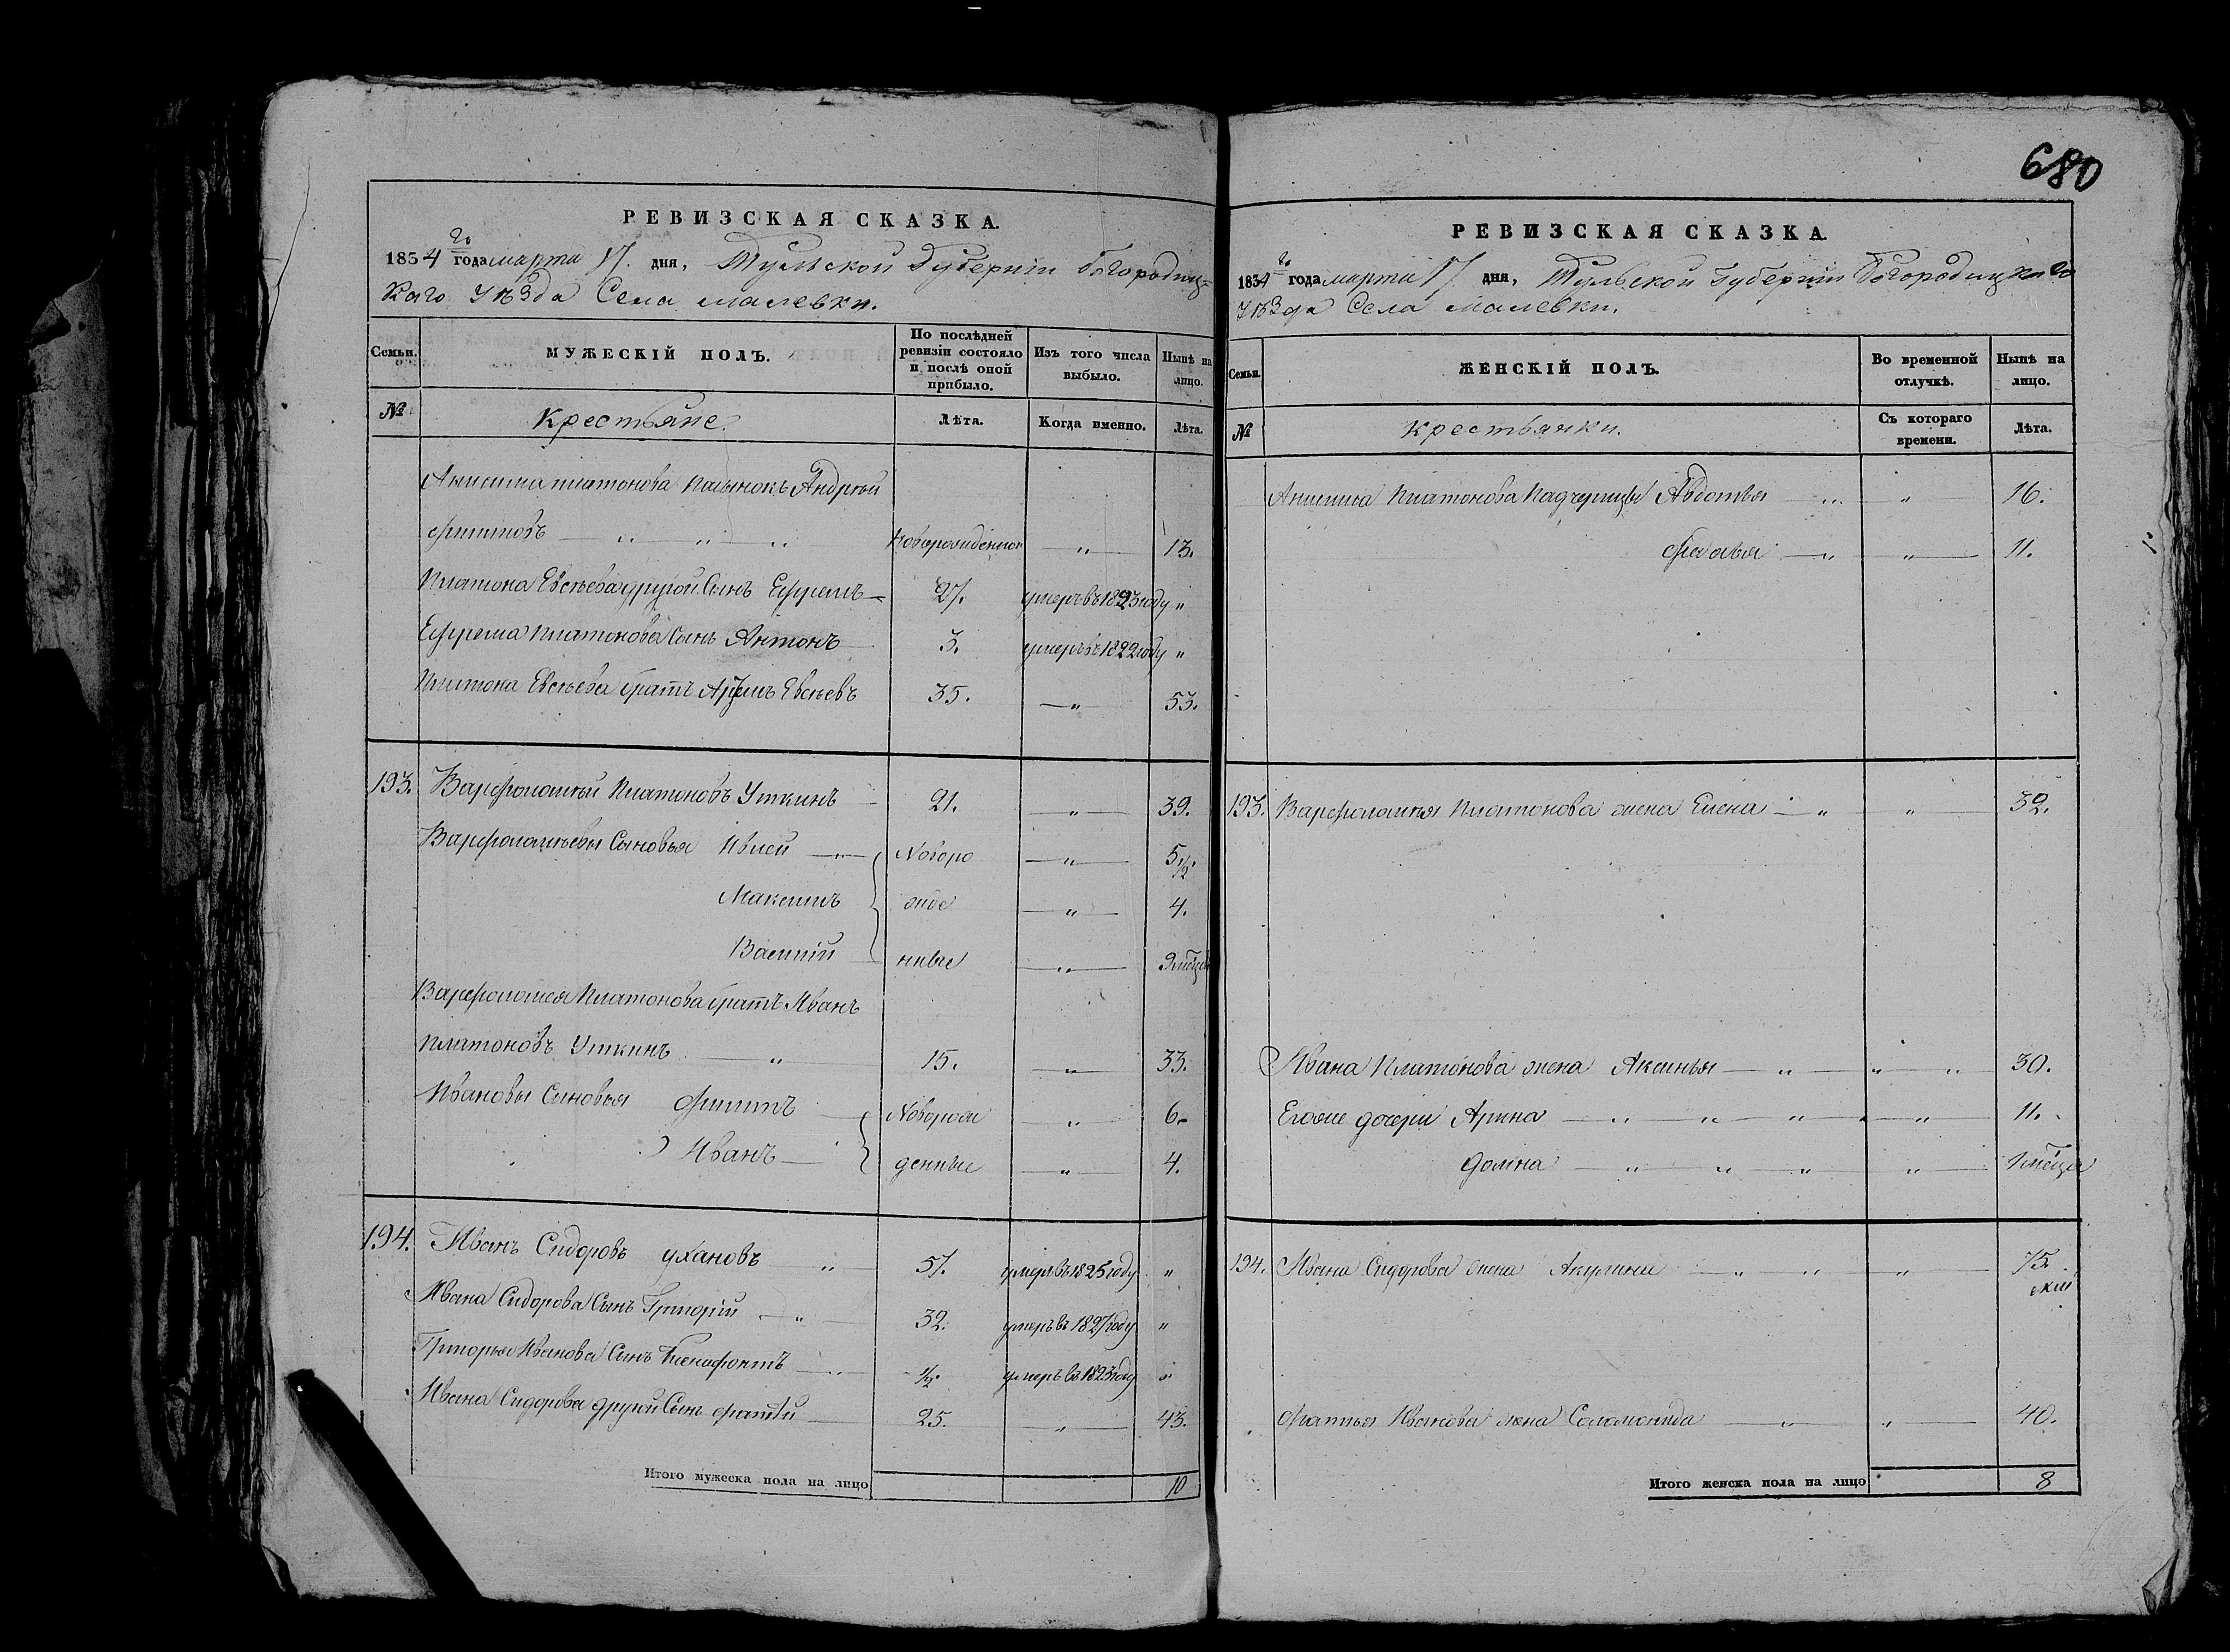 680
РЕВИЗСКАЯ СКАЗКА.
1834 го года марта 17. дня, Тульской Губерніи Богородиц=
каго Уѣзда Села Малевки.
Семьи.
МУЖЕСКІЙ ПОЛЪ.
По послѣдней ревизіи состояло и послѣ оной прибыло.
Изъ того числа выбыло.
Нынѣ на лицо.
№
Крестьяне.
Лѣта.
Когда именно.
Лѣта.
Анисима Платонова пасынокъ Андрей
Филиповъ новорожденной " 13.
Платона Евсѣева другой Сынъ Ефремъ 27. умеръ въ 1823 году "
Ефрема Платонова Сынъ Антонъ 3. умеръ въ 1822 году "
Платона Евсѣева братъ Евсѣевъ 35. " 53.
193. Варфоломѣй Платоновъ Уткинъ 21. " 39.
Варфоломѣевы Сыновья Ивлей Новоро " 5 1/2.
Максимъ жде " 4.
Василій нные " 9 мѣсяц
Варфоломея Платонова братъ Иванъ
Платоновъ Уткинъ " 15. " 33.
Ивановы Сыновья Филипъ Новорож " 6.
Иванъ денные " 4.
194. Иванъ Сидоровъ Ухановъ " 57. умеръ въ 1825 году "
Ивана Сидорова Сынъ Григорій " 32. умеръ въ 1827 году "
Григорья Иванова Сынъ Ксенофонтъ 1/2. умеръ въ 1823 году "
Ивана Сидорова другой Сынъ Фатѣй 25. " 43.
Итого мужеска пола на лицо 10
РЕВИЗСКАЯ СКАЗКА.
1834 го года марта 17 дня, Тульской Губерніи Богородицкаго
Уѣзда Села Малевки.
Семьи.
ЖЕНСКІЙ ПОЛЪ.
Во временной отлучкѣ.
Нынѣ на лицо.
№
Крестьянки.
Съ котораго времени.
Лѣта.
Анисима Платонова падчерицы Авдотья " " 16.
" " 11.
193. Варфоломѣя Платонова жена Елена " " 32.
Ивана Платонова жена Аксинья " " " 30.
Егоже дочери Арина " " " " 11.
Домна " " " " 1 мѣсяца
194. Ивана Сидорова жена Акулина " " " 75.
Фатѣя Иванова жена Соломонида " " 40.
Итого женска пола на лицо 8